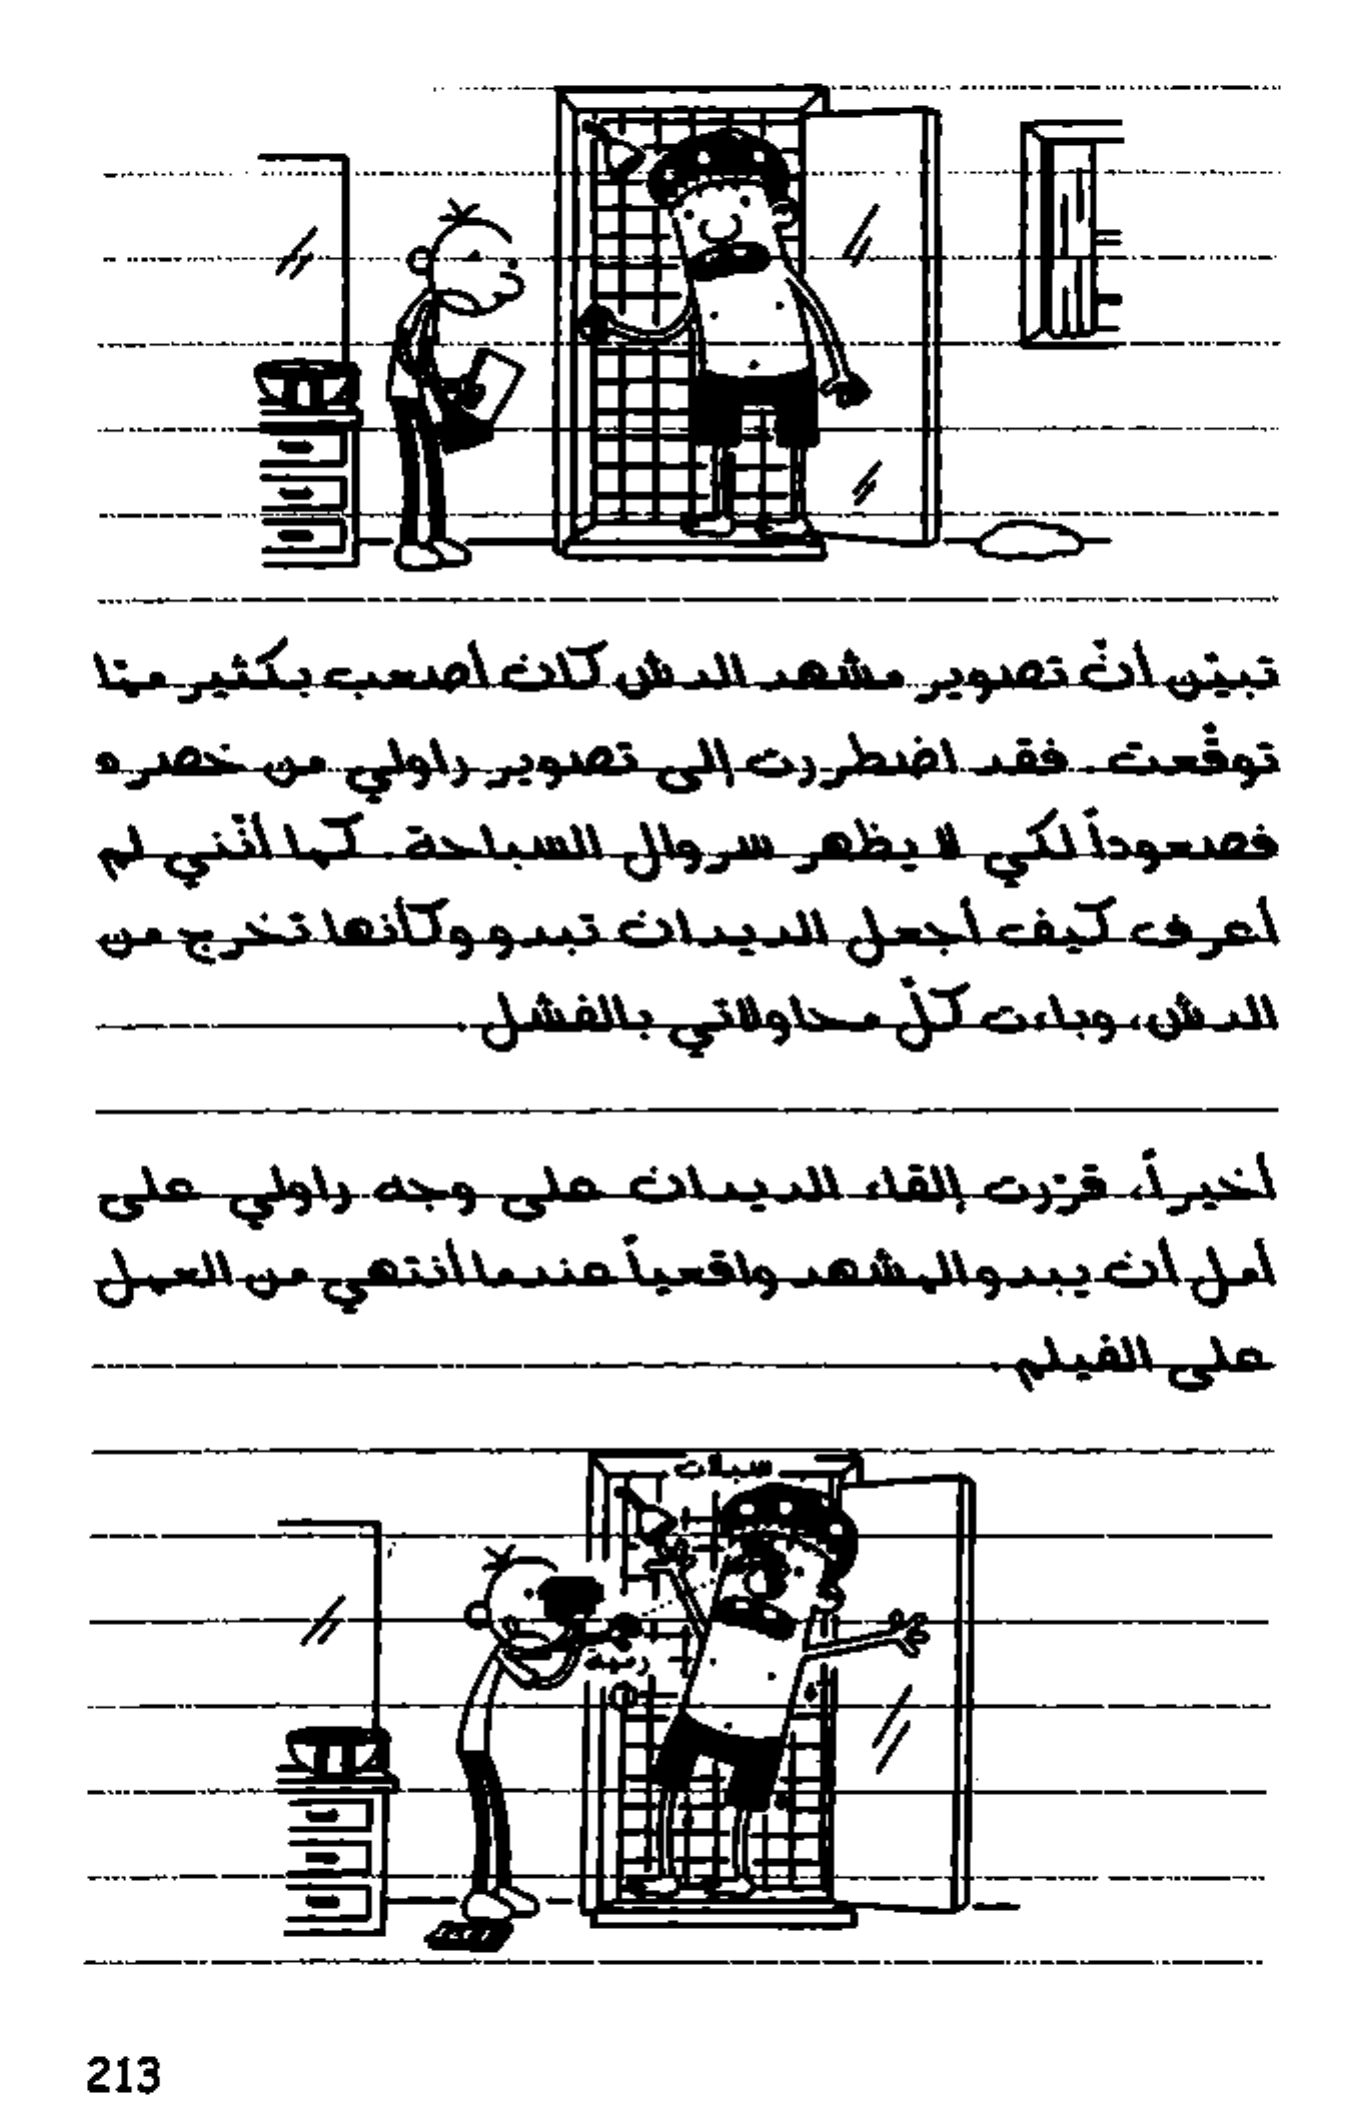 تبيّن أنّ تصوير مشهد الدش كان أصعب بكثير ممّا
توقّعت. فقد اضطررت إلى تصوير راولي من خصره
فصعوداً لكي لا يظهر سروال السباحة. كما أنّني لم
أعرف كيف أجعل الديدان تبدو وكأنها تخرج من
الدش، وباءت كلّ محاولاتي بالفشل.
أخيراً، قرّرت إلقاء الديدان على وجه راولي على
أمل أن يبدو المشهد واقعياً عندما أنتهي من العمل
على الفيلم.
سبلات
رمية
213